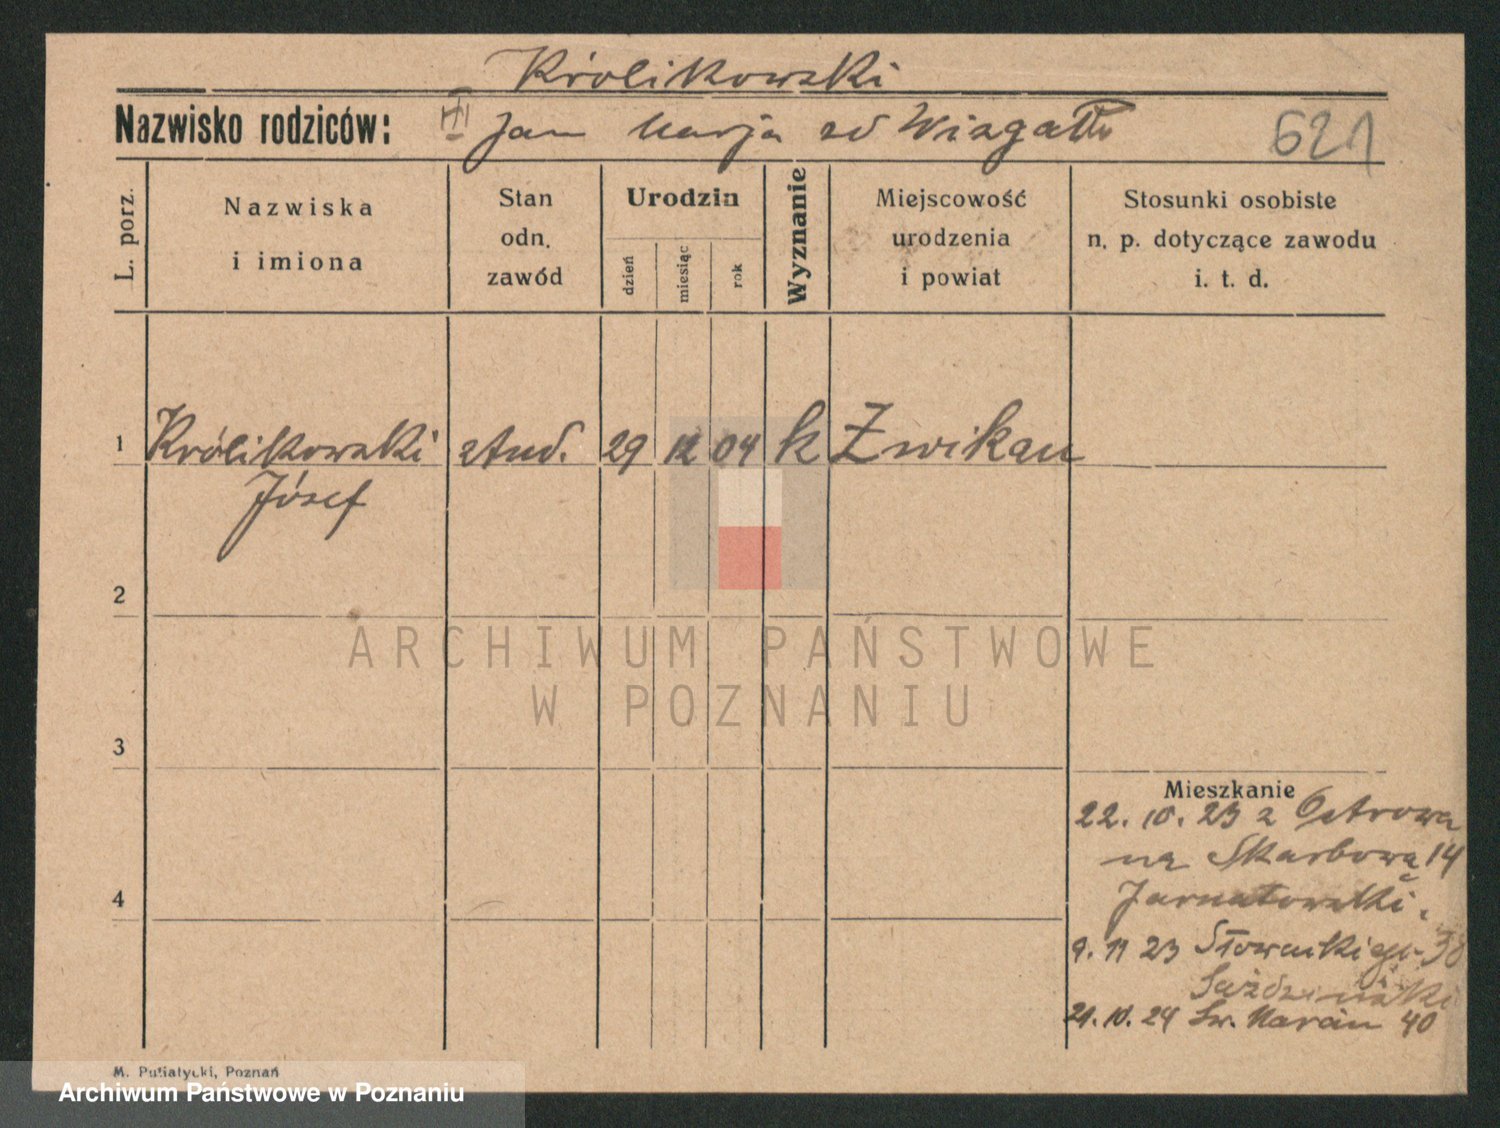 Królikowski
Nazwisko rodziców: Jan Marja
621
L. porz.
Nazwiska
i imiona
Stan
odn.
zawód
Urodzin
dzień
miesiąc
rok
Wyznanie
Miejscowość
urodzenia
i powiat
Stosunki osobiste
n. p. dotyczące zawodu
i. t. d.
1 Królikowski stud. 29 12 04 k Zwikau
Józef
2
3
4
ARCHIWUM PAŃSTWOWE
W POZNANIU
Mieszkanie
22. 10. 23 z Ostrowa
na Skarbową 14
9. 11 23 Słowackiego 38
21. 10. 24 Św. Marcin 40
M. Putiatycki, Poznań
Archiwum Państwowe w Poznaniu